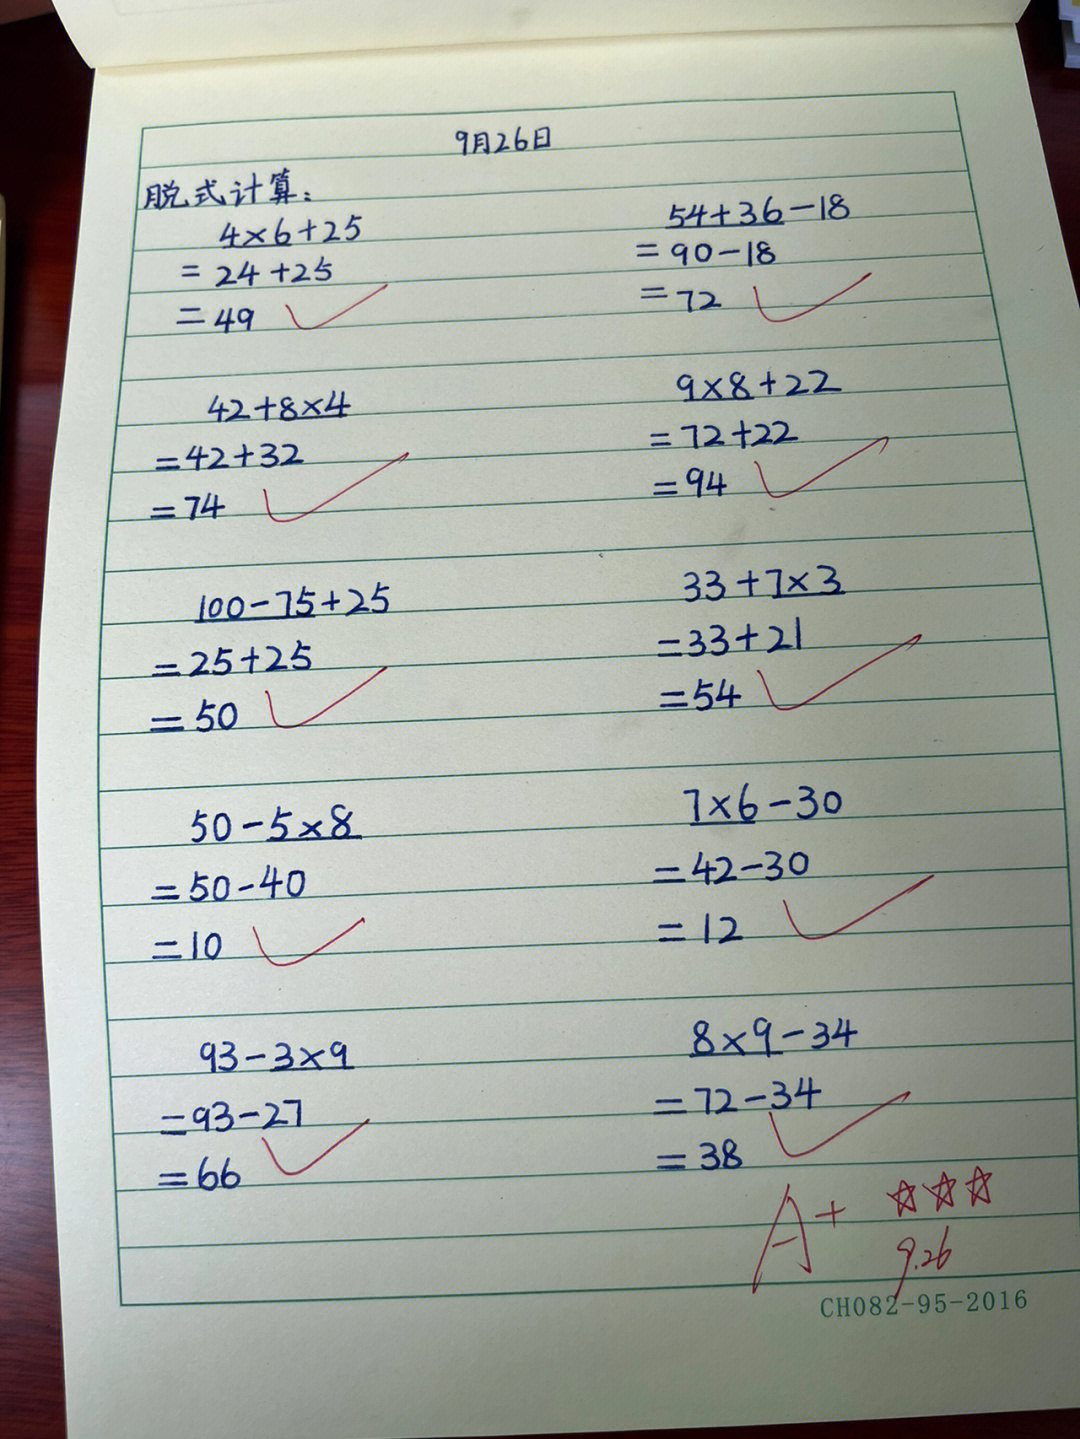 9月26日
脱式计算:
4×6+25
=24+25
=49
54+36-18
=90-18
=72
42+8×4
=42+32
=74
9×8+22
=72+22
=94
100-75+25
=25+25
=50
33+7×3
=33+21
=54
50-5×8
=50-40
=10
7×6-30
=42-30
=12
93-3×9
=93-27
=66
8×9-34
=72-34
=38
A+ ☆☆☆
9.26
CH082-95-2016